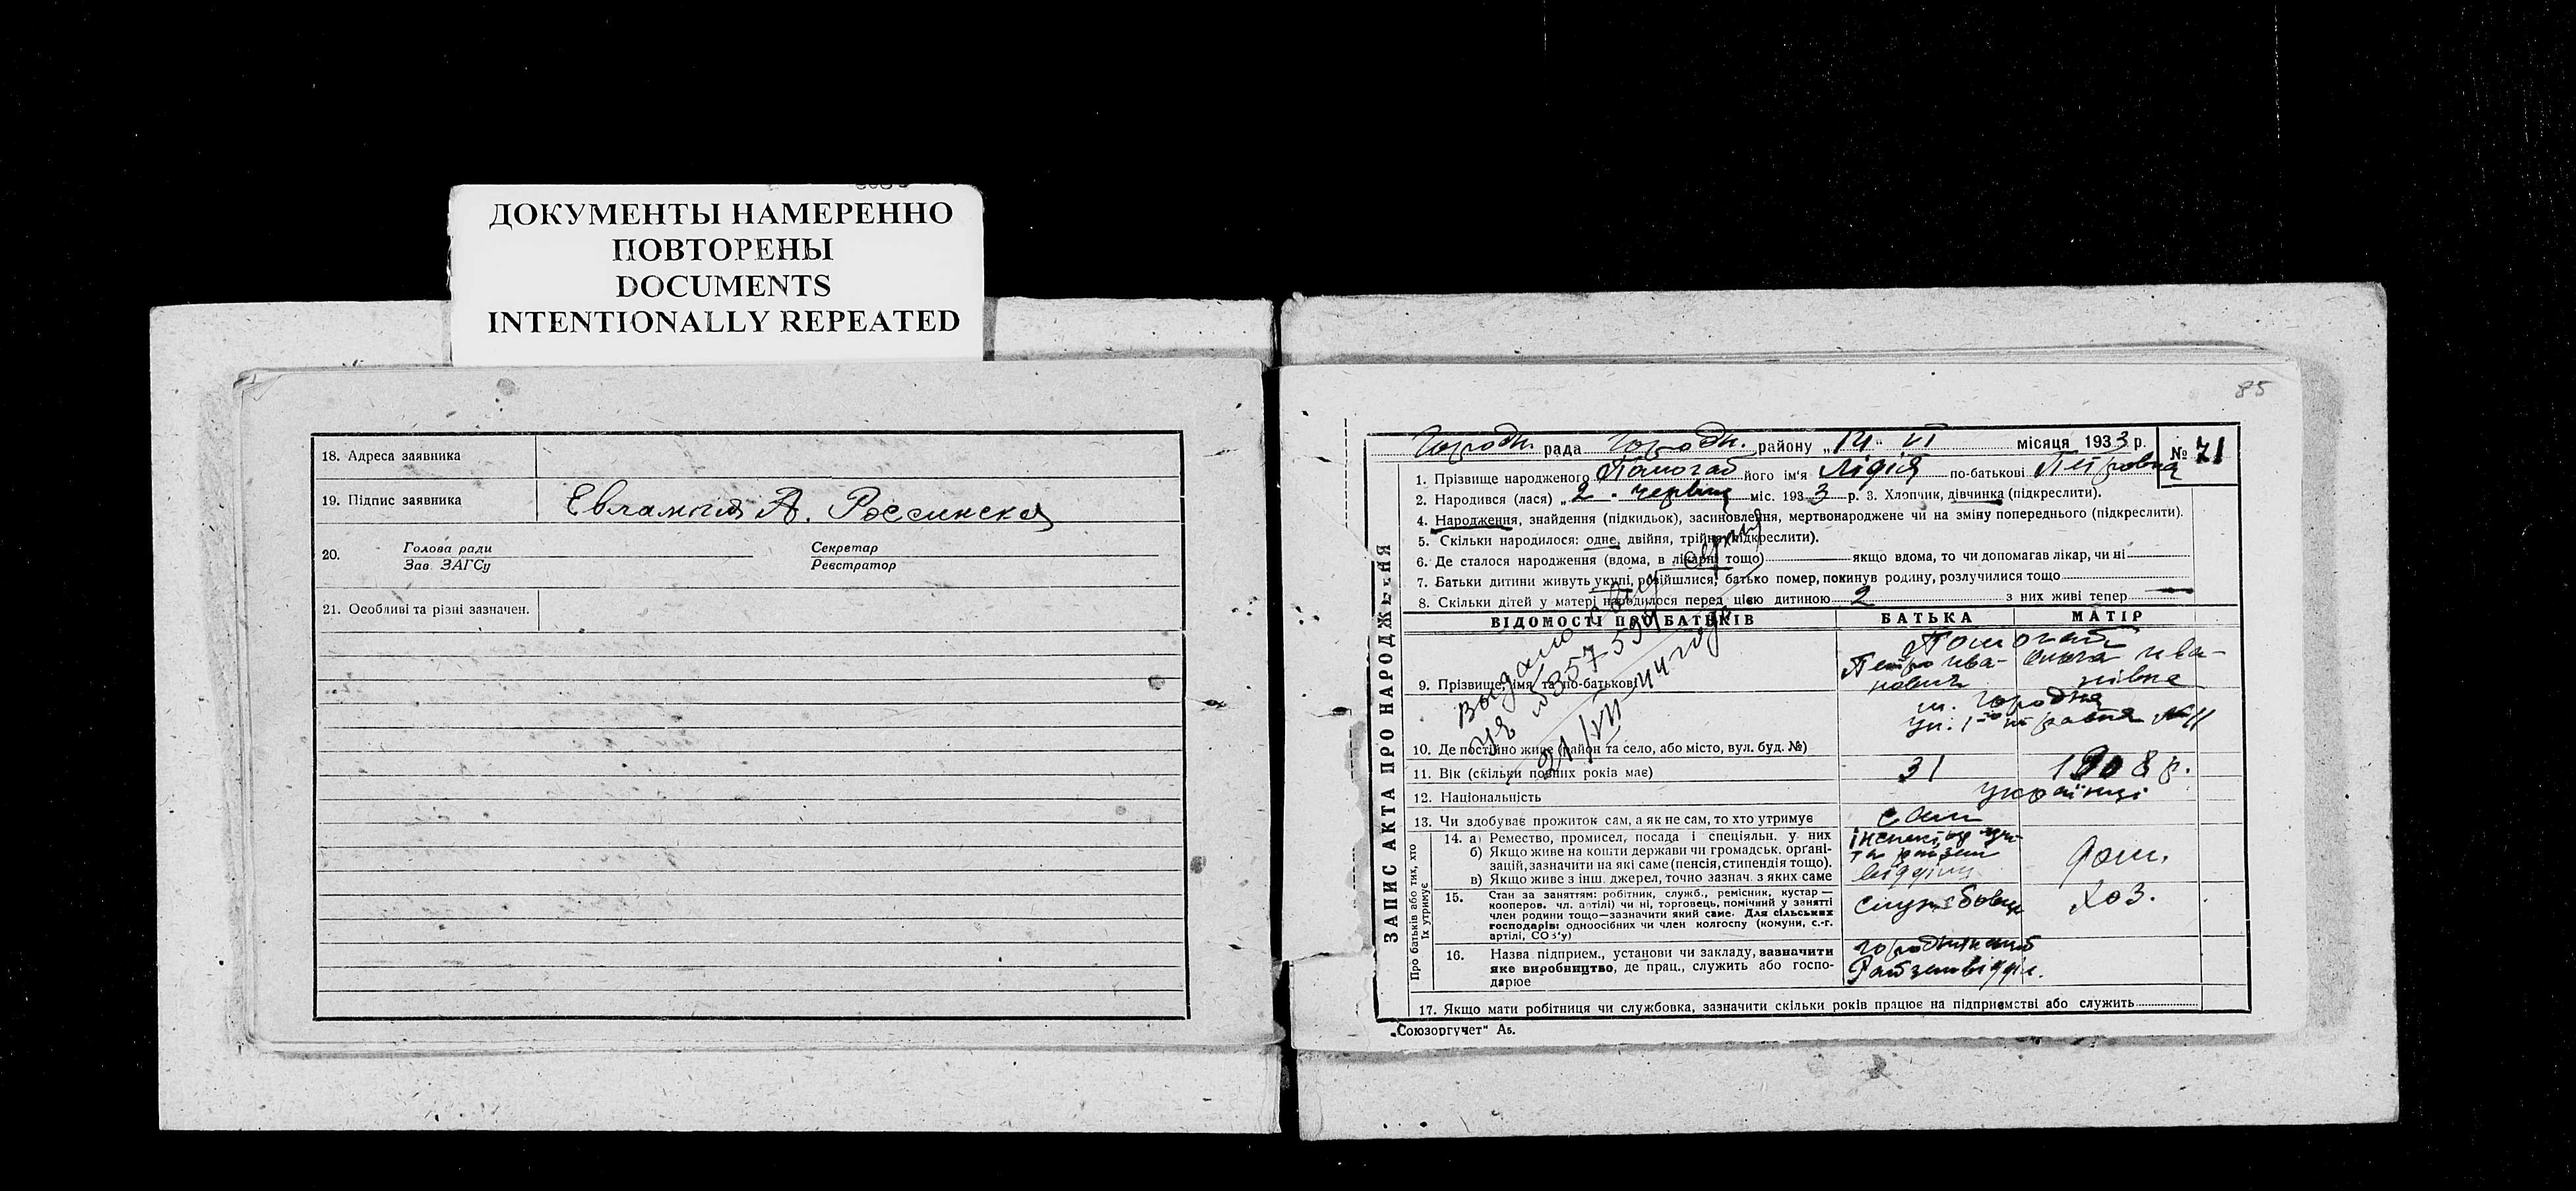 ДОКУМЕНТЫ НАМЕРЕННО
ПОВТОРЕНЫ
DOCUMENTS
INTENTIONALLY REPEATED
18. Адреса заявника
19. Підпис заявника Евлампия А. Россинская
20. Голова ради Секретар
Зав. ЗАГСу Реєстратор
21. Особливі та різні зазначен.
85
Городн. рада Городн. району „14“ VI місяця 1933 р. № 71
ЗАПИС АКТА ПРО НАРОДЖЕННЯ
1. Прізвище народженого Помогай його ім'я Лідія по-батькові Петровна
2. Народився (лася) „2“ червня міс. 1933 р. 3. Хлопчик, дівчинка (підкреслити).
4. Народження, знайдення (підкидьок), засиновлення, мертвонароджене чи на зміну попереднього (підкреслити).
5. Скільки народилося: одне, двійня, трійня (підкреслити).
6. Де сталося народження (вдома, в лікарні тощо) якщо вдома, то чи допомагав лікар, чи ні
7. Батьки дитини живуть укупі, розійшлися, батько помер, покинув родину, розлучилися тощо
8. Скільки дітей у матері народилося перед цією дитиною 2 з них живі тепер —
ВІДОМОСТІ ПРО БАТЬКІВ БАТЬКА МАТІР
Помогай
9. Прізвище, імя та по-батькові Петро Іва- нович Івa- нівна
м. Городня
10. Де постійно живе (район та село, або місто, вул. буд. №) ул. 1-го травня № 11
11. Вік (скільки повних років має) 31 1908 р.
12. Національність українці
13. Чи здобуває прожиток сам, а як не сам, то хто утримує сам
Про батьків або тих, хто їх утримує
14. а) Ремество, промисел, посада і спеціяльн. у них
б) Якщо живе на кошти держави чи громадськ. органі-
зацій, зазначити на які саме (пенсія, стипендія тощо).
в) Якщо живе з інш. джерел, точно зазнач. з яких саме
відділу дом.
15. Стан за заняттям: робітник, служб., ремісник, кустар —
кооперов. чл. артілі) чи ні, торговець, помічний у занятті
член родини тощо—зазначити який саме. Для сільських
господарів: одноосібних чи член колгоспу (комуни, с.-г.
артілі, СОЗ'у)
службовець хоз.
16. Назва підприєм., установи чи закладу, зазначити
яке виробництво, де прац., служить або госпо-
дарює
Городнянський
Райземвідділ.
17. Якщо мати робітниця чи службовка, зазначити скільки років працює на підприємстві або служить
Выдано
357534
21/VII 44 года
„Союзоргучет“ Аб.